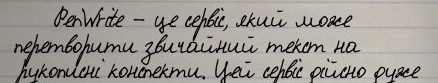 PenWrite – це сервіс, який може
перетворити звичайний текст на
рукописні конспекти. Цей сервіс дійсно дуже